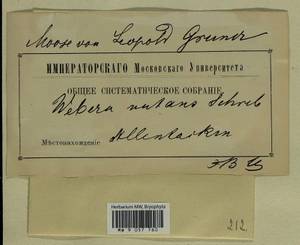 Moose von Leopold Gruner
ИМПЕРАТОРСКАГО Московскаго Университета
ОБЩЕЕ СИСТЕМАТИЧЕСКОЕ СОБРАНІЕ
Webera nutans Schreb
Мѣстонахожденіе Allentacken
Herbarium MW, Bryophyta
MW 9 037 760
212.